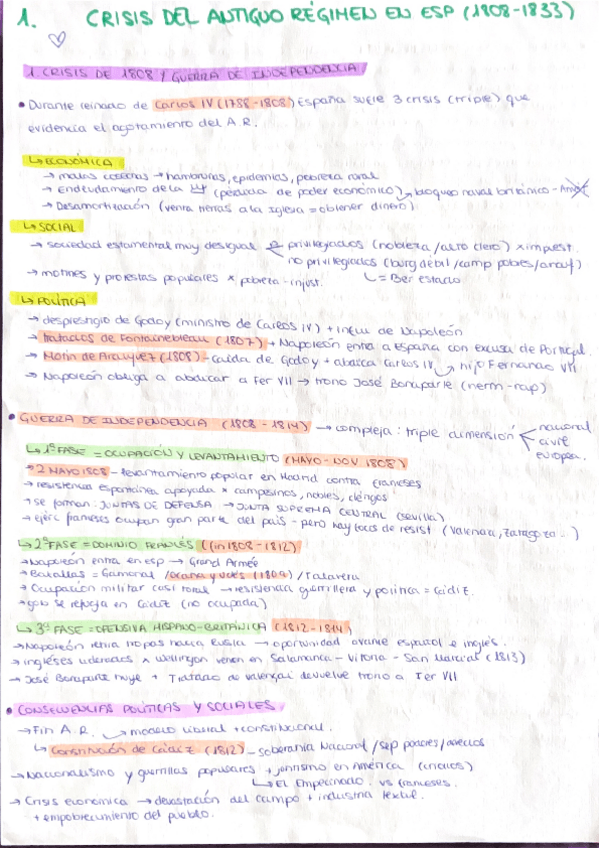 1. CRISIS DEL ANTIGUO RÉGIMEN EN ESP (1808-1833)
1. CRISIS DE 1808 Y GUERRA DE INDEPENDENCIA
• Durante reinado de Carlos IV (1788-1808) España sufre 3 crisis (triple) que
evidencia el agotamiento del A.R.
↳ ECONÓMICA
→ malas cosechas → hambrunas, epidemias, pobreza rural
→ Endeudamiento de la (pérdida de poder económico) bloqueo naval británico -
→ Desamortización (venta tierras a la Iglesia = obtener dinero)
↳ SOCIAL
→ sociedad estamental muy desigual privilegiados (nobleza/alto clero) x impuest.
no privilegiados (burg débil/camp pobres/analf)
→ motines y protestas populares x pobreza - injust. = 3er estado
↳ POLÍTICA
→ desprestigio de Godoy (ministro de Carlos IV) + influ de Napoleón
→ tratados de Fontainebleau (1807) + Napoleón entra a España con excusa de Portugal.
→ Motín de Aranjuez (1808) - caída de Godoy + abdica Carlos IV hijo Fernando VII
→ Napoleón obliga a abdicar a Fer VII → trono José Bonaparte (herm-nap)
• GUERRA DE INDEPENDENCIA (1808 - 1814) → compleja: triple dimensión
nacional
civil
europea.
↳ 1ª FASE = OCUPACIÓN Y LEVANTAMIENTO (MAYO - NOV 1808)
→ 2 MAYO 1808 - levantamiento popular en Madrid contra franceses
→ resistencia espontánea apoyada x campesinos, nobles, clérigos
→ se forman: JUNTAS DE DEFENSA → JUNTA SUPREMA CENTRAL (Sevilla)
→ ejérc franceses ocupan gran parte del país - pero hay focos de resist (Valencia, Zaragoza...)
↳ 2ª FASE = DOMINIO FRANCÉS (fin 1808 - 1812)
→ Napoleón entra en esp → Grand Armée
→ Batallas = Gamonal /Ocaña y Uclés (1809) / Talavera
→ Ocupación militar casi total → resistencia guerrillera y política = Cádiz.
→ gob se refugia en Cádiz (no ocupada)
↳ 3ª FASE = OFENSIVA HISPANO-BRITÁNICA (1812-1814)
→ Napoleón retira tropas hacia Rusia → oportunidad avance español e inglés.
→ ingleses liderados x Wellington vencen en Salamanca - Vitoria - San Marcial (1813)
→ José Bonaparte huye + Tratado de Valençai devuelve trono a Fer VII
• CONSECUENCIAS POLÍTICAS Y SOCIALES
→ Fin A.R. modelo liberal + constitucional.
↳ Constitución de Cádiz (1812) - soberanía Nacional / sep poderes/derechos
→ Nacionalismo y guerrillas populares + juntismo en América (criollos)
↳ El Empecinado. vs franceses.
→ Crisis económica → devastación del campo + industria textil.
+ empobrecimiento del pueblo.